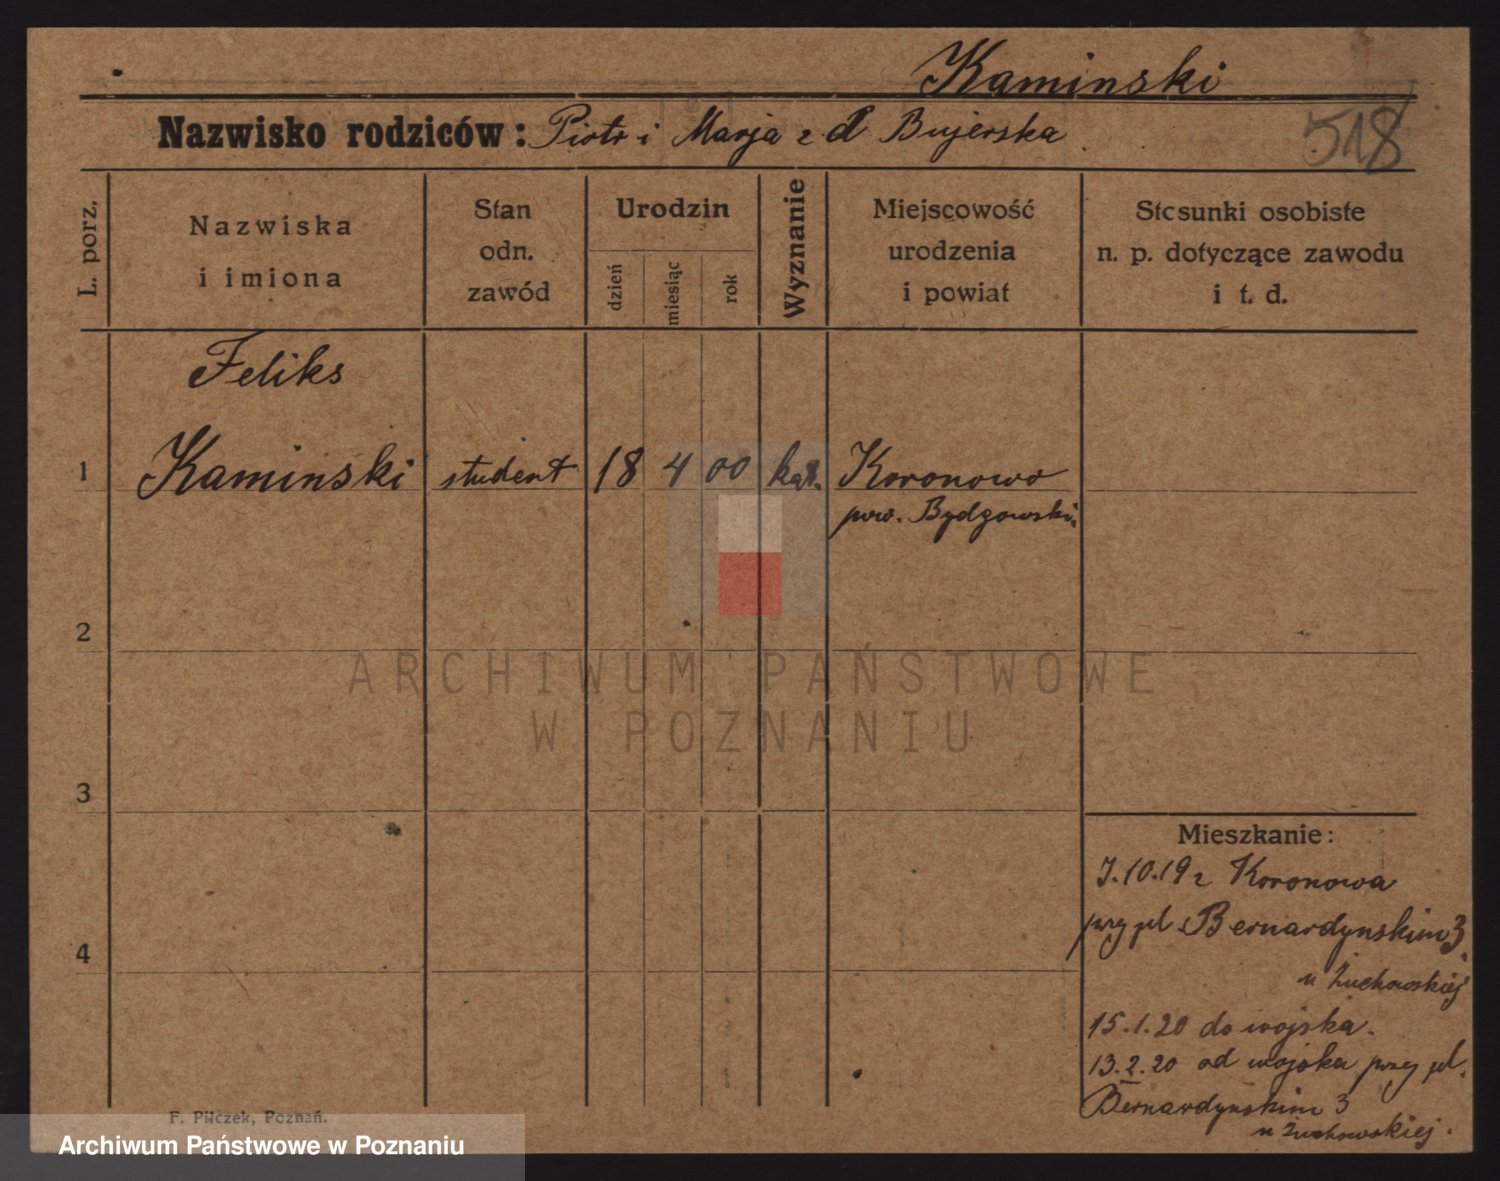 Kaminski
Nazwisko rodziców: Piotr i Marja z d Bujerska
518
L. porz.
Nazwiska
i imiona
Stan
odn.
zawód
Urodzin
dzień
miesiąc
rok
Wyznanie
Miejscowość
urodzenia
i powiat
Stosunki osobiste
n. p. dotyczące zawodu
i t. d.
Feliks
1 Kaminski student 18 4 00 kat. Koronowo
pow. Bydgowski
2
ARCHIWUM PAŃSTWOWE
W POZNANIU
3
Mieszkanie:
7.10.19 z Koronowa
przy pl. Bernardynskim 3
4
u Żuchowskiej
15.1.20 do wojska.
13.2.20 od wojska przy pl.
Bernardynskim 3
u Żuchowskiej.
F. Pilczek, Poznań.
Archiwum Państwowe w Poznaniu